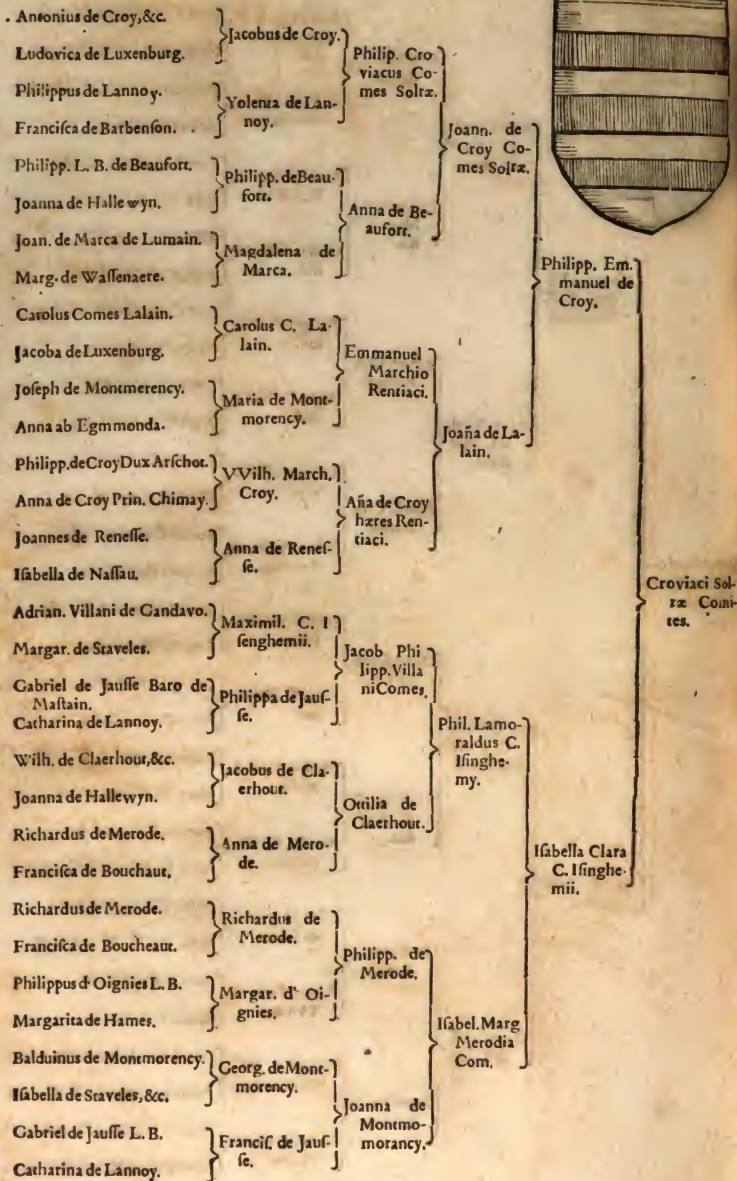 . Antonius de Croy,&c.
Ludovica de Luxenburg.
Philippus de Lannoy.
Franciſca de Barbenſon.
Philipp. L. B. de Beaufort.
Joanna de Hallewyn.
Joan. de Marca de Lumain.
Marg. de Waſſenaere.
Carolus Comes Lalain.
Jacoba de Luxenburg.
Joſeph de Montmerency.
Anna ab Egmmonda.
Philipp.de Croy Dux Arſchot.
Anna de Croy Prin. Chimay.
Joannes de Reneſſe.
Iſabella de Naſſau.
Adrian. Villani de Gandavo.
Margar. de Staveles.
Gabriel de Jauſſe Baro de
Maſtain.
Catharina de Lannoy.
Wilh. de Claerhout,&c.
Joanna de Hallewyn.
Richardus de Merode.
Franciſca de Bouchaut.
Richardus de Merode.
Franciſca de Boucheaut.
Philippus d' Oignies L. B.
Margarita de Hames.
Balduinus de Montmorency.
Iſabella de Staveles,&c.
Gabriel de Jauſſe L. B.
Catharina de Lannoy.
Jacobus de Croy.
Yolenta de Lan-
noy.
Philipp. de Beau-
fort.
Magdalena de
Marca.
Carolus C. La-
lain.
Maria de Mont-
morency.
VVilh. March.
Croy.
Anna de Reneſ-
ſe.
Maximil. C. I
ſenghemii.
Philippa de Jauſ-
ſe.
Jacobus de Cla-
erhout.
Anna de Mero-
de.
Richardus de
Merode.
Margar. d' Oi-
gnies.
Georg. de Mont-
morency.
Franciſ. de Jauſ-
ſe.
Philip. Cro
viacus Co-
mes Solræ.
Anna de Be-
aufort.
Emmanuel
Marchio
Rentiaci.
Aña de Croy
hæres Ren-
tiaci.
Jacob Phi
lipp. Villa
ni Comes.
Ottilia de
Claerhout.
Philipp. de
Merode.
Joanna de
Montmo-
morancy.
Joann. de
Croy Co-
mes Solræ.
Joaña de La-
lain.
Phil. Lamo-
raldus C.
Iſinghe-
my.
Iſabel. Marg
Merodia
Com.
Philipp. Em.
manuel de
Croy.
Iſabella Clara
C. Iſinghe-
mii.
Croviaci Sol-
ræ Comi-
tes.